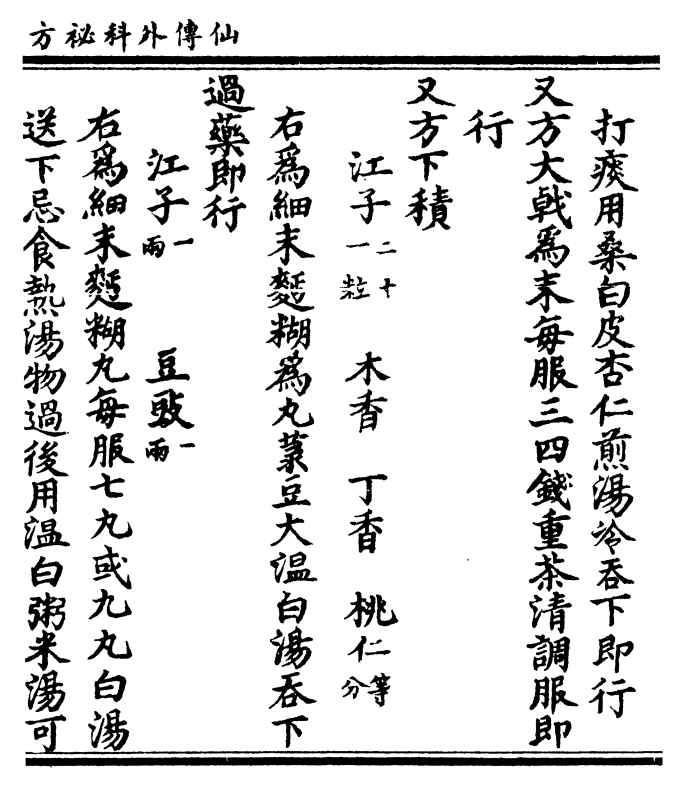 仙傳外科祕方
打痰用桑白皮杏仁煎湯冷吞下即行
又方大戟爲末每服三四錢重茶清調服即
行
又方下積
江子二十一粒 木香 丁香 桃仁等分
右爲細末麪糊爲丸菉豆大溫白湯吞下
過藥即行
江子一兩 豆豉一兩
右爲細末麪糊丸每服七丸或九丸白湯
送下忌食熱湯物過後用温白粥米湯可